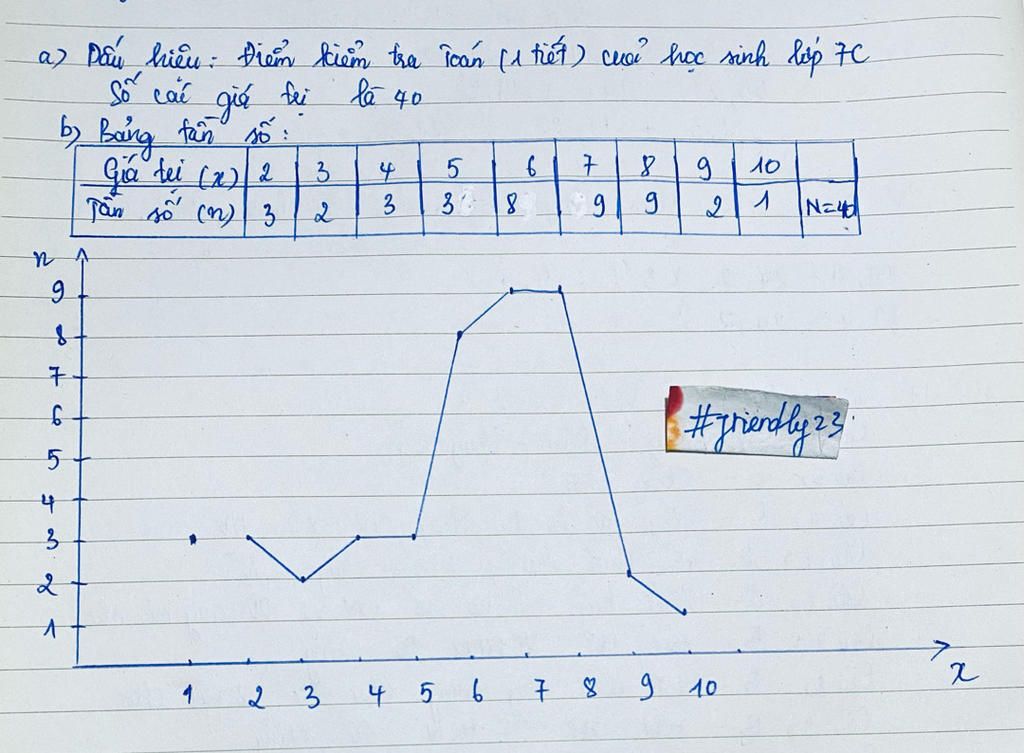 a) Dấu hiệu: Điểm kiểm tra Toán (1 tiết) của học sinh lớp 7C
Số các giá trị là 40
b) Bảng tần số:
Giá trị (x) 2 3 4 5 6 7 8 9 10
Tần số (n) 3 2 3 3 8 9 9 2 1 N=40
n
9
8
7
6
5
4
3
2
1
#friendly23
1 2 3 4 5 6 7 8 9 10
x